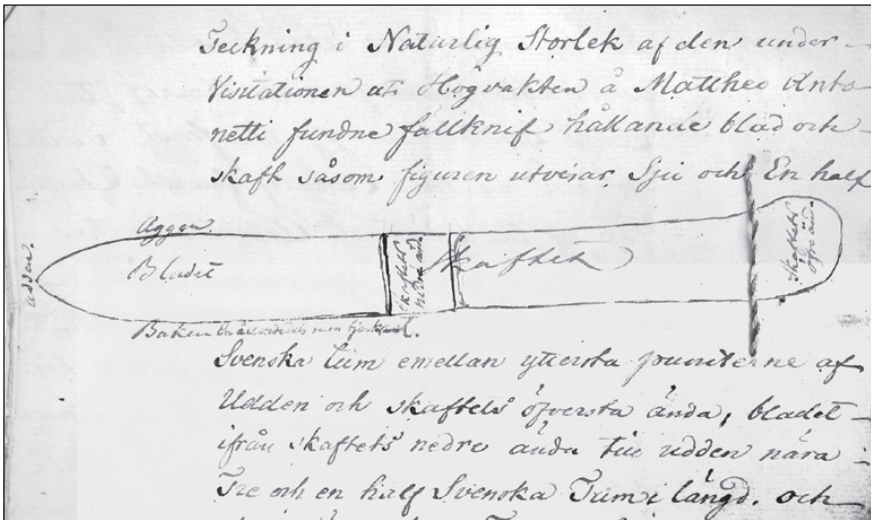 Teckning i Naturlig Storlek af den under
Visitationen uti Högvakten å Mattheo Anto
netti fundne fällknif hållande blad och
skaft såsom figuren utvisar Sju och En half
Äggen.
udden.
Bladet
skaftets nedre änd
Skaftet
skaftets öfre änd.
Baken
Svenska tum emellan yttersta puncterne af
Udden och skaftets öfversta ända, bladet
ifrån skaftets nedre ända till udden nära
Tre och en half Svenska Tum i längd, och